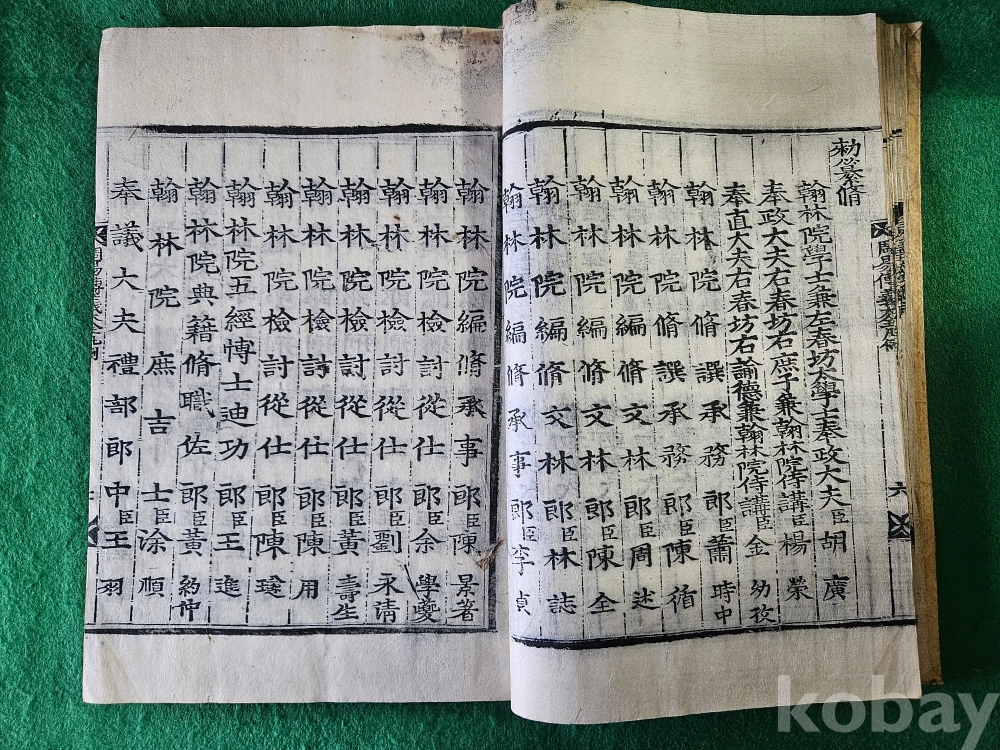 勑纂脩
翰林院學士兼左春坊大學士奉政大夫臣胡廣
奉政大夫右春坊右庶子兼翰林院侍講臣楊榮
奉直大夫右春坊右諭德兼翰林院侍講臣金幼孜
翰林院脩譔承務郎臣蕭時中
翰林院脩譔承務郎臣陳循
翰林院編脩文林郎臣周述
翰林院編脩文林郎臣陳全
翰林院編脩文林郎臣林誌
翰林院編脩承事郎臣李貞
翰林院編脩承事郎臣陳景著
翰林院檢討從仕郎臣余學夔
翰林院檢討從仕郎臣劉永清
翰林院檢討從仕郎臣黃壽生
翰林院檢討從仕郎臣陳用
翰林院檢討從仕郎臣陳璲
翰林院五經博士迪功郎臣王進
翰林院典籍脩職佐郎臣黃約仲
翰林院庶吉士臣涂順
奉議大夫禮部郎中臣王羽
周易傳義大全凡例
六
kobay